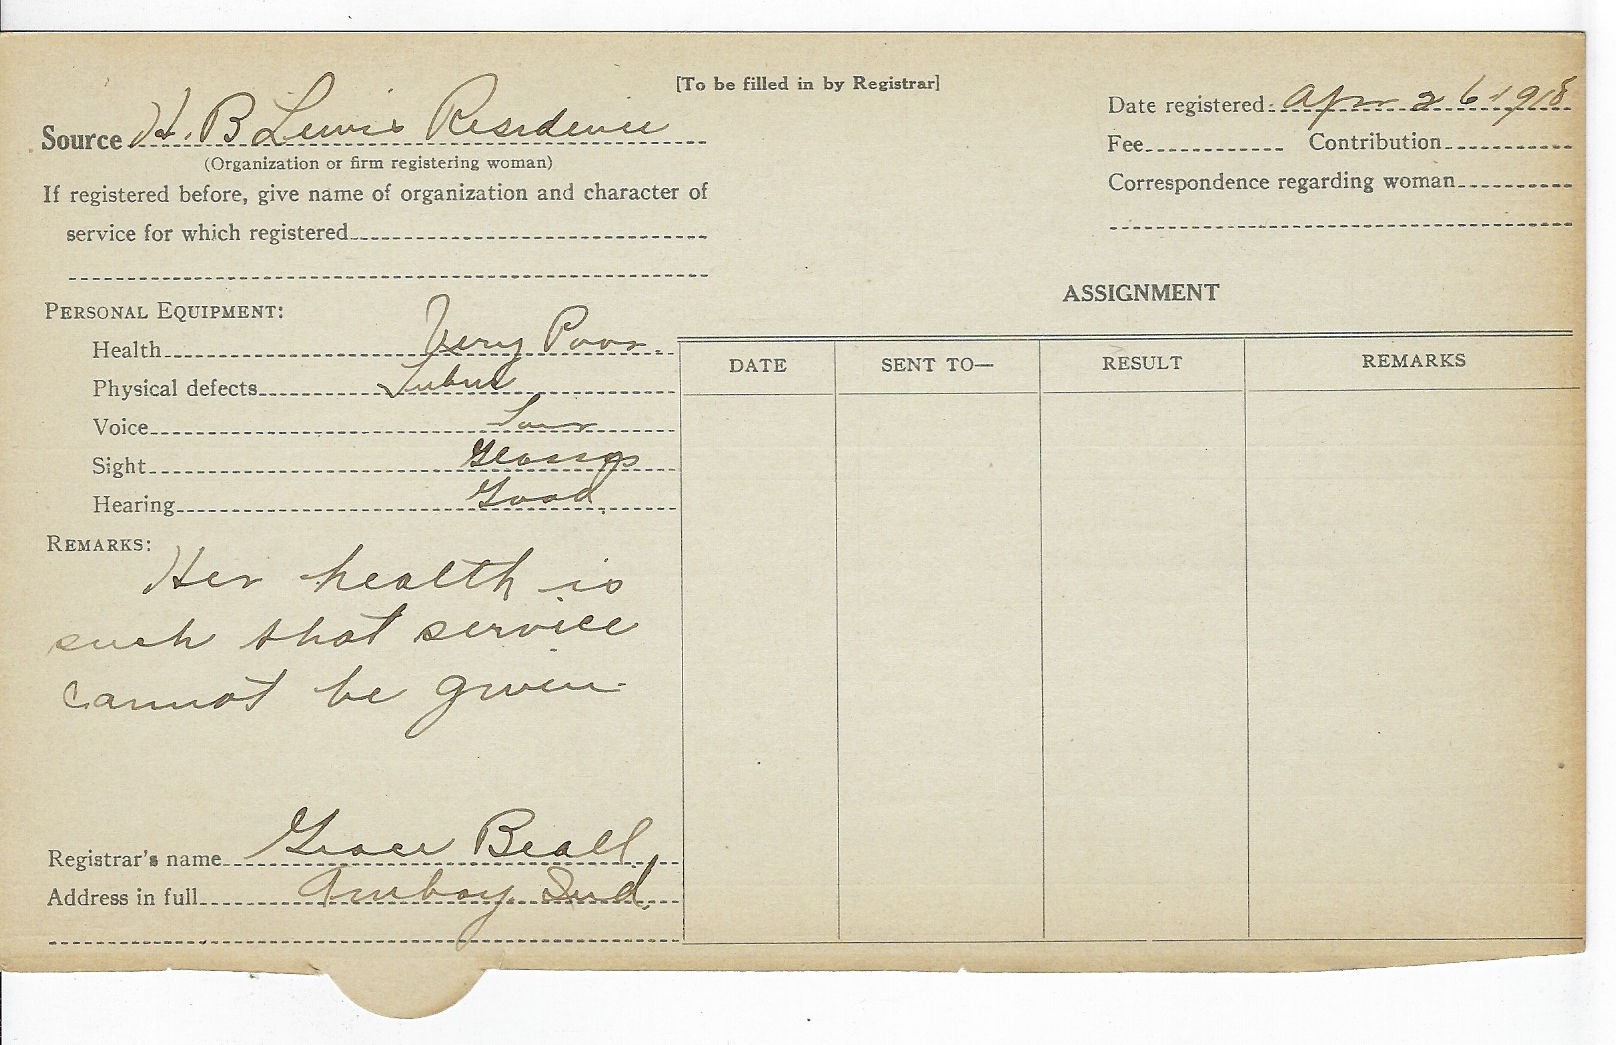 [To be filled in by Registrar]
Source H. B Lewis Residence
(Organization or firm registering woman)
If registered before, give name of organization and character of
service for which registered
Date registered Apr 26 1918
Fee Contribution
Correspondence regarding woman
PERSONAL EQUIPMENT:
Health Very Poor.
Physical defects
Voice
Sight Glasses
Hearing Good
REMARKS:
Her health is
such that service
cannot be given
Registrar's name Grace Beall
Address in full Amboy Ind.
ASSIGNMENT
DATE SENT TO— RESULT REMARKS